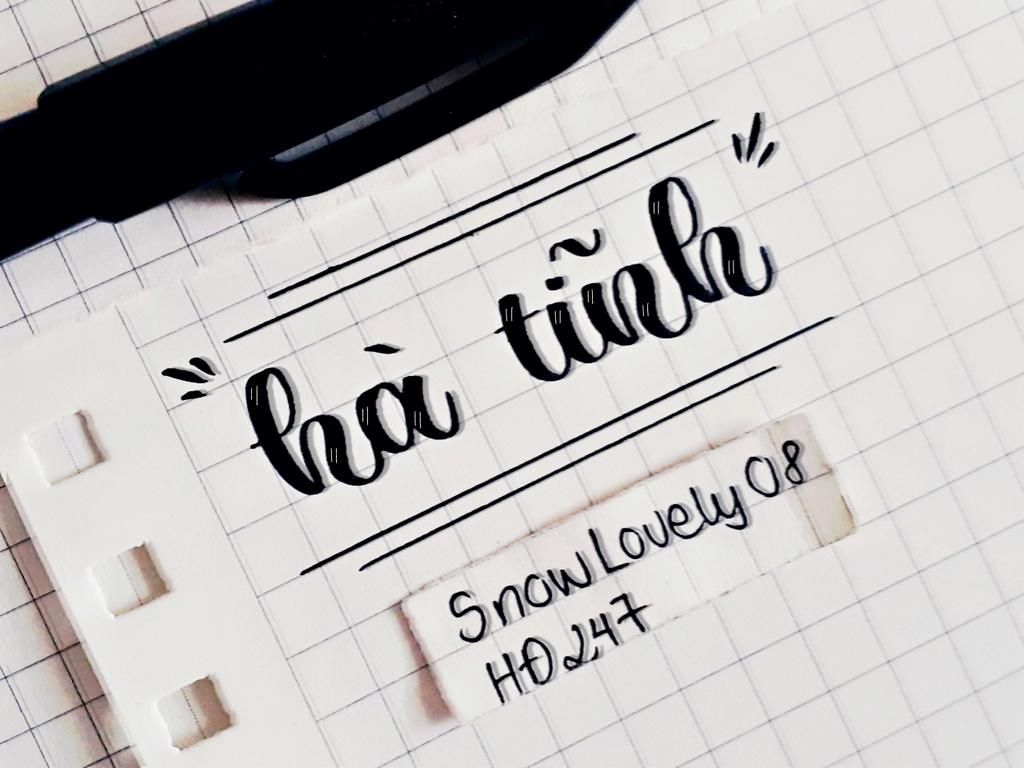 hà tĩnh
SnowLovely08
HĐ247